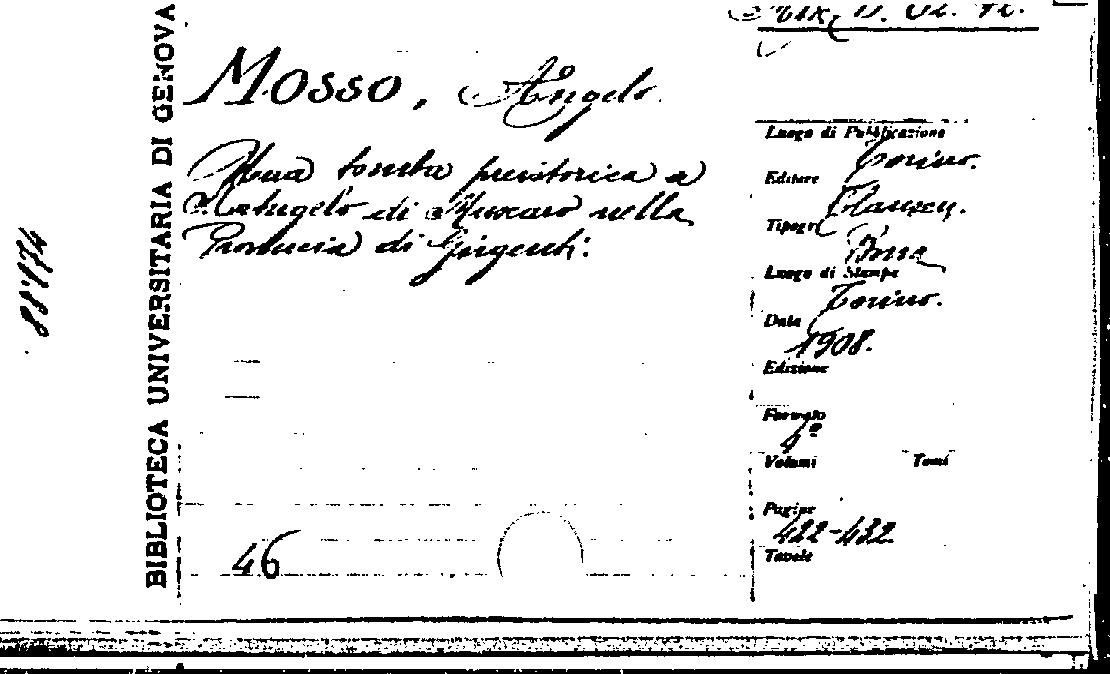 MOSSO, Angelo.
Una tomba preistorica a
di Muxaro nella
Provincia di Girgenti.
46
BIBLIOTECA UNIVERSITARIA DI GENOVA
Luogo di Pubblicazione
Torino.
Editore
Clausen.
Tipogr
Bona
Luogo di Stampa
Torino.
Data
1908.
Edizione
Formato
4º
Volumi Tomi
Pagine
422-432
Tavole